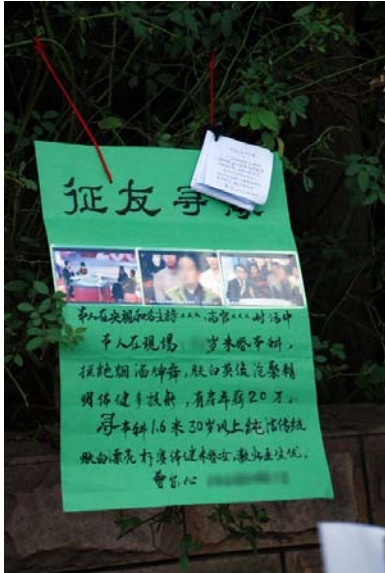 征友寻缘
本人在央视和名主持×××、高官×××对话中
本人在现场: 岁未婚本科,
拒绝烟酒牌舞,肤白英俊活泼精
明体健多技能,有房年薪20万。
寻本科1.6米30岁以上纯洁传统
肤白漂亮朴实体健未婚女,教师医生优。